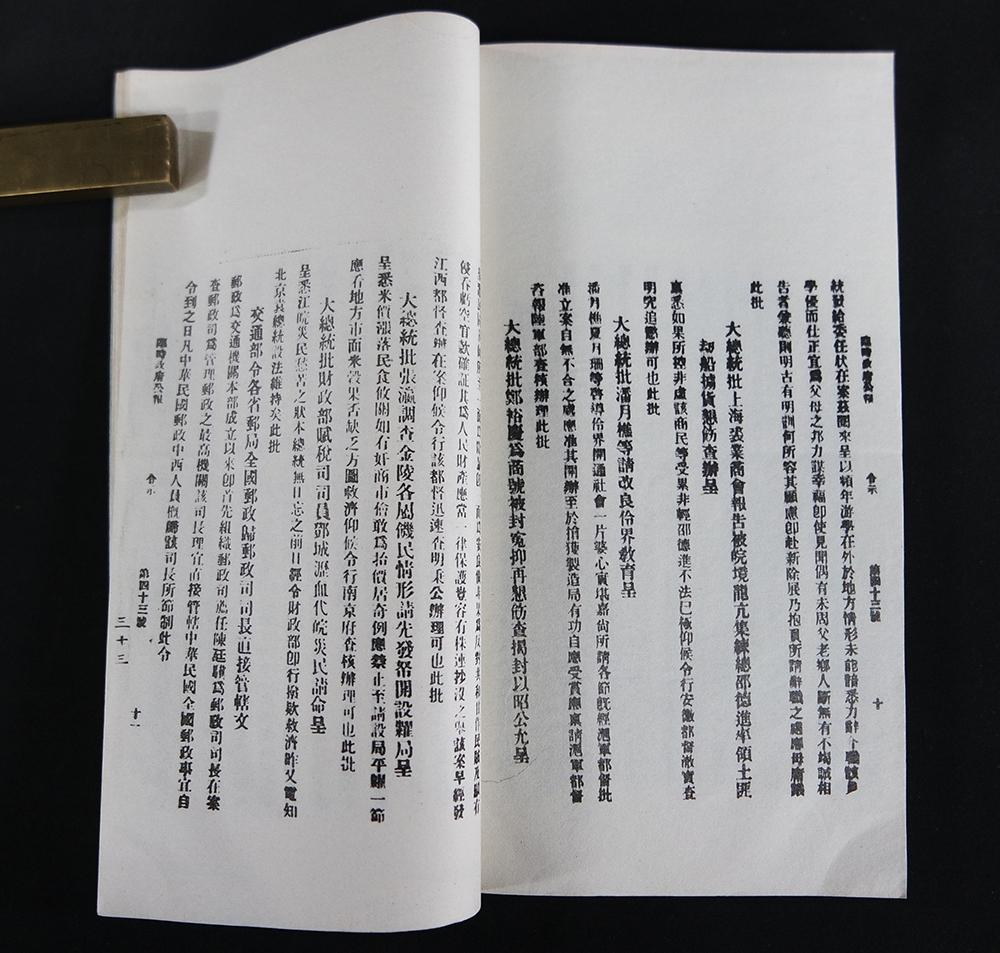 臨時政府公報 令示 第四十三號 十
統發給委任狀在案茲聞來呈以頻年游學在外於地方情形未能諳悉力辭 職該
學優而仕正宜爲父母之邦力謀幸福卽使見聞偶有未周父老鄉人斷無有不竭誠相
告者兼聽則明古有明訓何所容其顧慮卽赴新除展乃抱負所請辭職之處應毋庸議
此批
大總統批上海裘業商會報告被皖境龍亢集練總邵德進率領土匪
刼船擄貨懇飭查辦呈
稟悉如果所控非虛該商民等受累非輕邵德進不法已極仰候令行安徽都督澈實查
明究追懲辦可也此批
大總統批潘月樵等請改良伶界教育呈
潘月樵夏月珊等啓導伶界開通社會一片婆心實堪嘉尚所請各節旣經滬軍都督批
准立案自無不合之處應准其開辦至於搶獲製造局有功自應受賞應稟請滬軍都督
咨報陸軍部查核辦理此批
大總統批鄭裕慶爲商號被封寃抑再懇飭查揭封以昭公允呈
侵吞虧空官款確証其爲人民財產應當一律保護豈容有株連抄沒之 該案早經發
江西都督查辦在案仰候令行該都督迅速查明秉公辦理可也此批
大總統批張瀛調查金陵各屬磯民情形請先發帑開設糶局呈
呈悉米價漲落民食攸關如有奸商市儈敢爲抬價居奇例應禁止至請設局平糶一節
應否地方市面米穀果否缺乏方圖救濟仰候令行南京府查核辦理可也此批
大總統批財政部賦稅司司員鄧城瀝血代皖災民請命呈
呈悉江皖災民愁苦之狀本總統無日忘之前日經令財政部卽行撥欵救濟昨又電知
北京袁總統設法維持矣此批
交通部令各省郵局全國郵政歸郵政司司長直接管轄文
郵政爲交通機關本部成立以來卽首先組織郵政司薦任陳廷驥爲郵政司司長在案
查郵政司爲管理郵政之最高機關該司長理宜直接管轄中華民國全國郵政事宜自
令到之日凡中華民國郵政中西人員槪歸該司長所節制此令
臨時政府公報 令示 第四十三號 十一
三十三